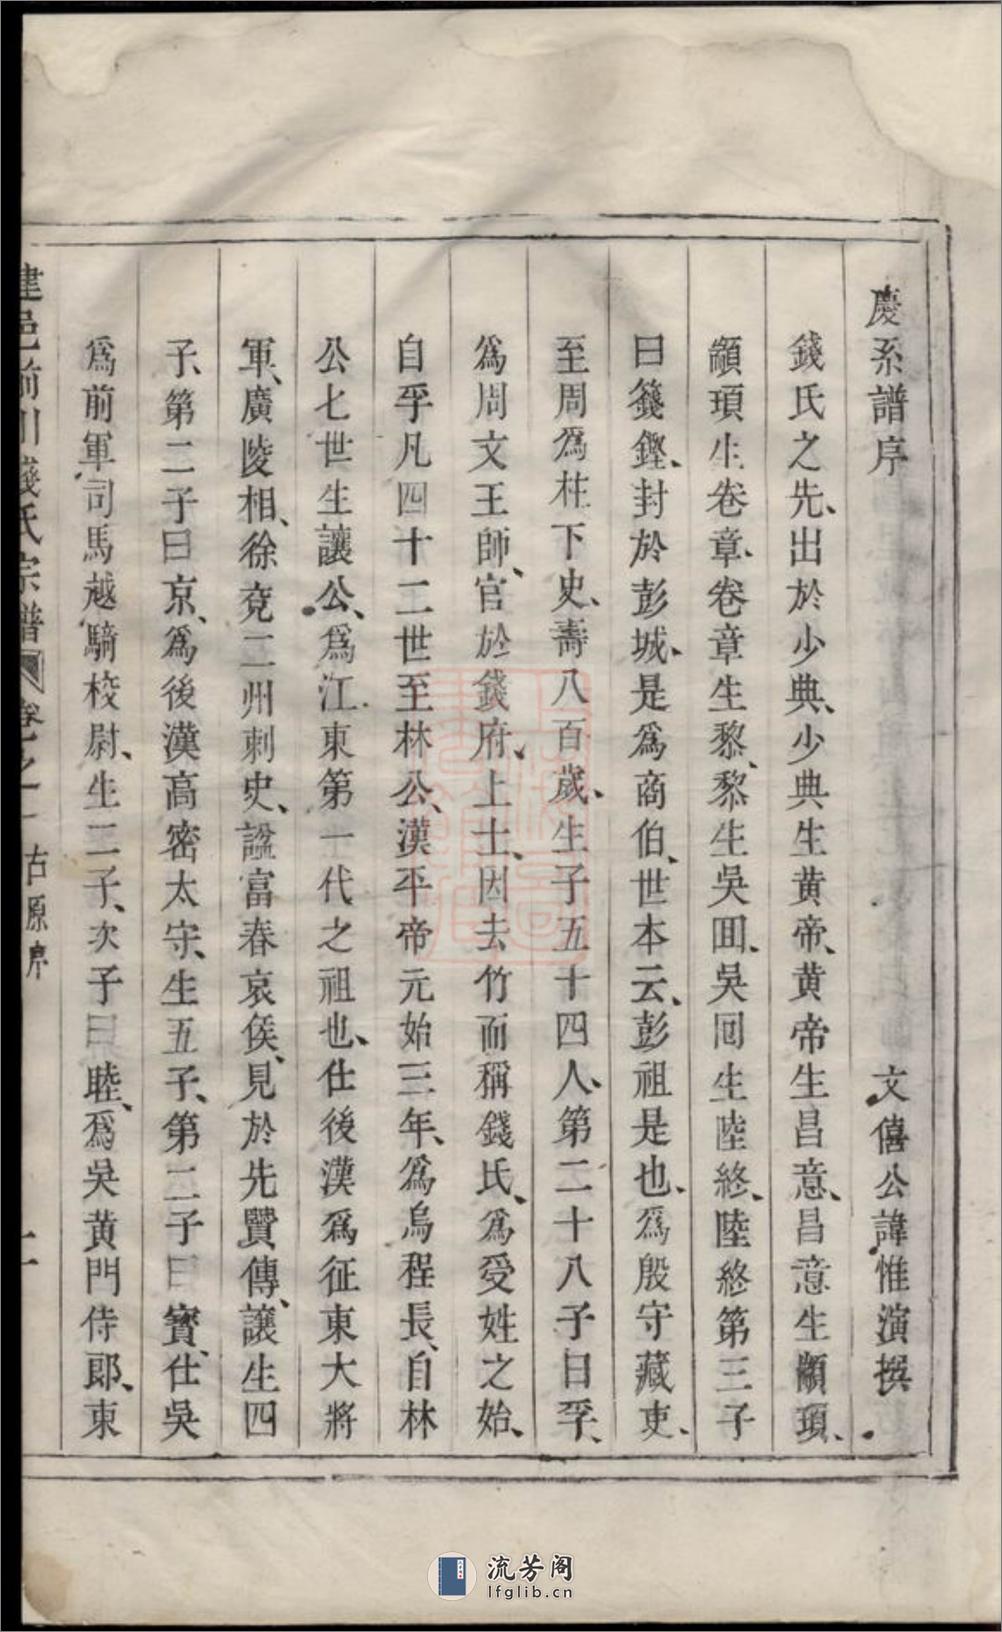 慶系譜序
文僖公諱惟演撰
錢氏之先、出於少典、少典生黄帝、黄帝生昌意、昌意生顓頊、
顓頊生卷章、卷章生黎、黎生吳回、吳回生陸終、陸終第三子
曰籛鏗、封於彭城、是爲商伯、世本云、彭祖是也、爲殷守藏吏、
至周爲柱下史、壽八百歲、生子五十四人、第二十八子曰孚、
爲周文王師、官於錢府、上士、因去竹而稱錢氏、爲受姓之始、
自孚凡四十二世至林公、漢平帝元始三年、爲烏程長、自林
公七世生讓公、爲江東第一代之祖也、仕後漢爲征東大將
軍、廣陵相、徐兗二州刺史、謚富春哀侯、見於先賢傳、讓生四
子、第二子曰京、爲後漢高密太守、生五子、第二子曰寳、仕吳
爲前軍司馬越騎校尉、生二子、次子曰睦、爲吳黄門侍郎、東
建邑前川錢氏宗譜 卷之一 古原序 二
流芳阁
lfglib.cn